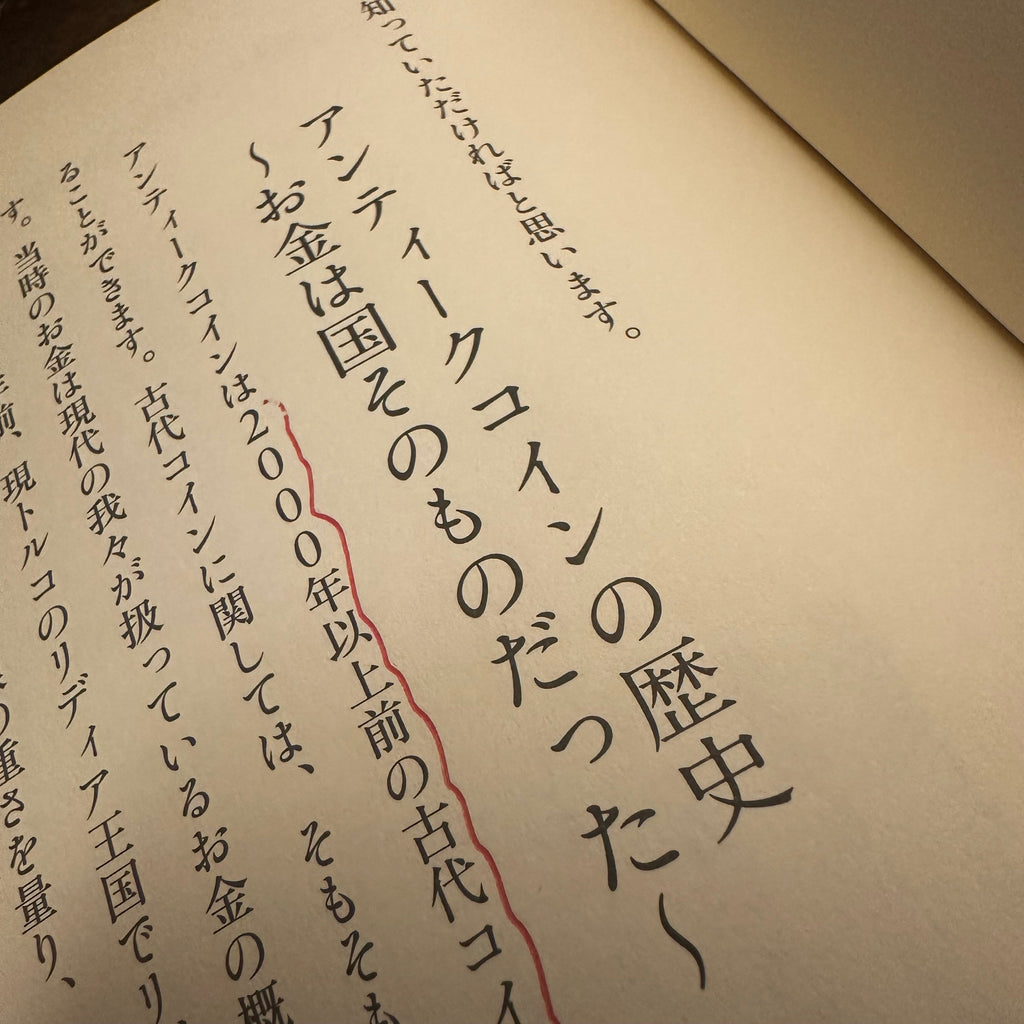 知っていただければと思います。
アンティークコインの歴史
〜お金は国そのものだった〜
アンティークコインは2000年以上前の古代コイ
ることができます。古代コインに関しては、そもそも
す。当時のお金は現代の我々が扱っているお金の概
前、現トルコのリディア王国でリ
の重さを量り、